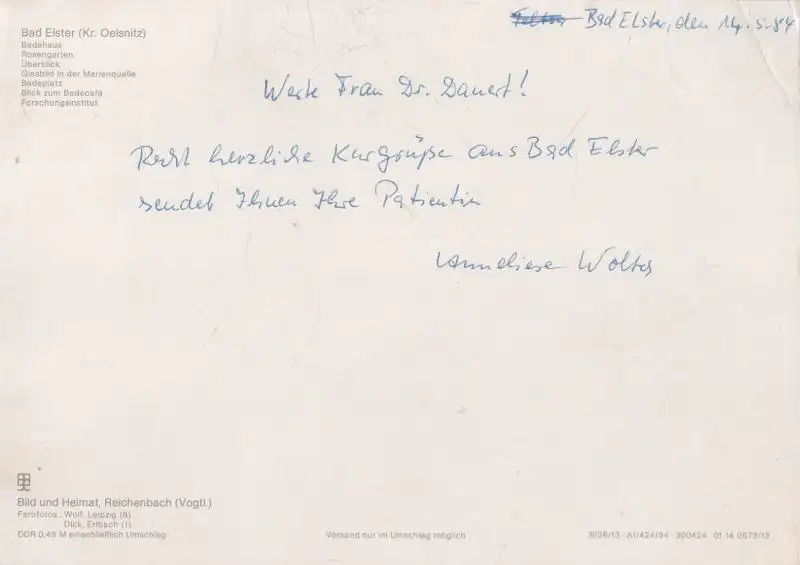 Bad Elster (Kr. Oelsnitz)
Badehaus
Rosengarten
Überblick
Glasbild in der Marienquelle
Badeplatz
Blick zum Badecafé
Forschungsinstitut
Bad Elster, den 14.5.84
Werte Frau Dr. Dauert!
Recht herzliche Kurgrüße aus Bad Elster
sendet Ihnen Ihre Patientin
Anneliese Wolter
Bild und Heimat, Reichenbach (Vogtl.)
Farbfotos: Wolf, Leipzig (6)
Dick, Erlbach (1)
DDR 0,45 M einschließlich Umschlag
Versand nur im Umschlag möglich
III/26/13 A1/424/84 300424 01 14 0573/13